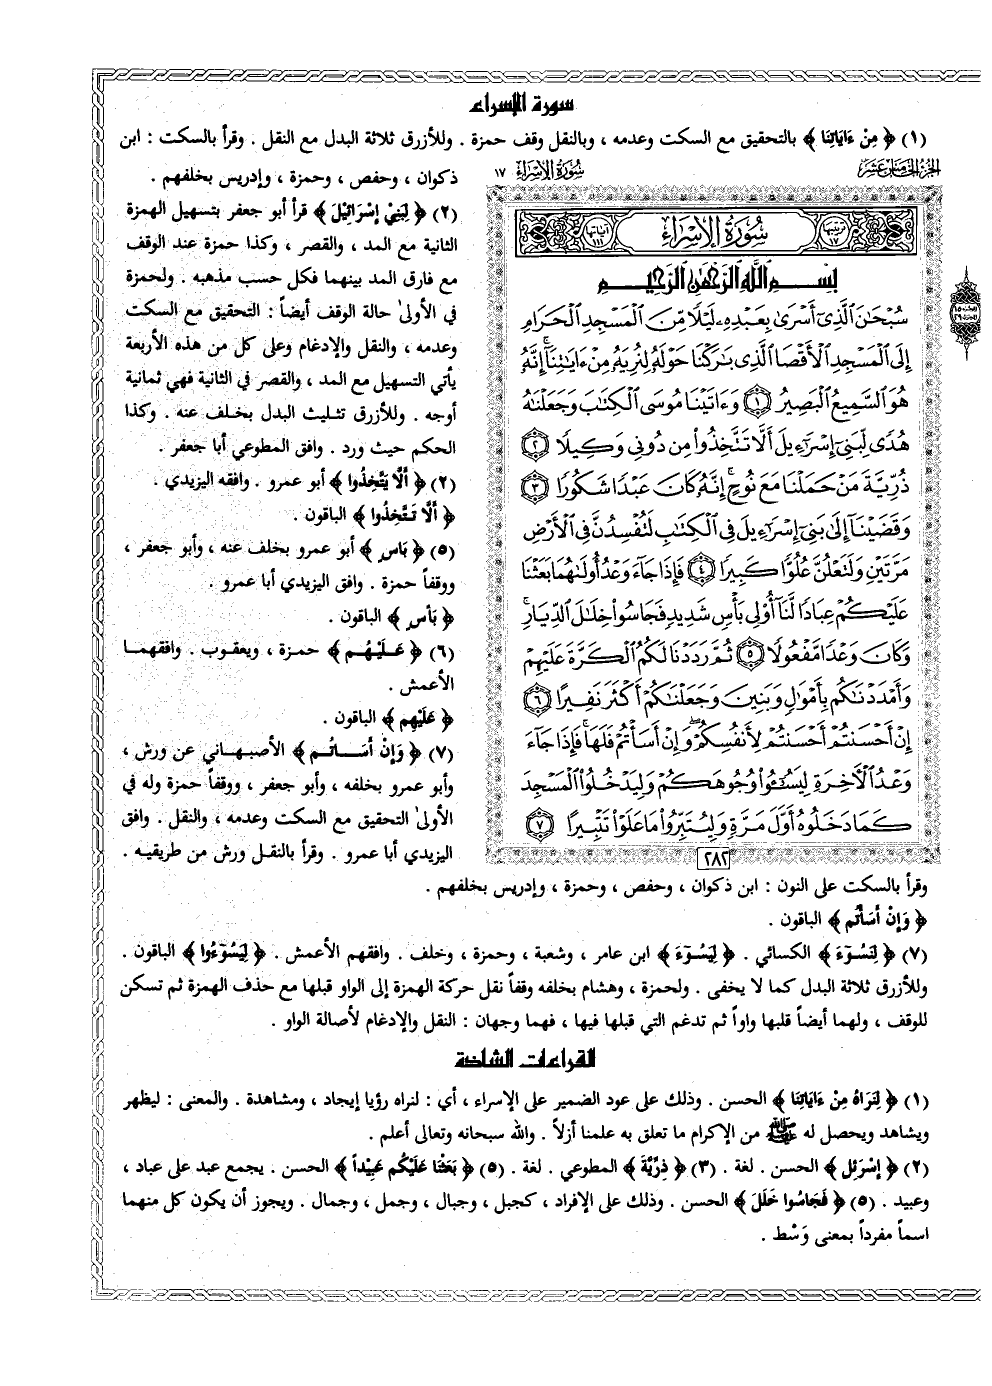 سورة الإسراء
(١) ﴿ مِنْ ءَايَاتِنَا ﴾ بالتحقيق مع السكت وعدمه ، وبالنقل وقف حمزة . وللأزرق ثلاثة البدل مع النقل . وقرأ بالسكت : ابن
ذكوان ، وحفص ، وحمزة ، وإدريس بخلفهم .
(٢) ﴿ لِبَنِيْ إِسْرَائِيْلَ ﴾ قرأ أبو جعفر بتسهيل الهمزة
الثانية مع المد ، والقصر ، وكذا حمزة عند الوقف
مع فارق المد بينهما فكل حسب مذهبه . ولحمزة
في الأولىٰ حالة الوقف أيضاً : التحقيق مع السكت
وعدمه ، والنقل والإدغام وعلى كل من هذه الأربعة
يأتي التسهيل مع المد ، والقصر في الثانية فهي ثمانية
أوجه . وللأزرق تثليث البدل بخلف عنه . وكذا
الحكم حيث ورد . وافق المطوعي أبا جعفر .
(٢) ﴿ أَلَّا يَتَّخِذُوا ﴾ أبو عمرو . وافقه اليزيدي .
﴿ أَلَّا تَتَّخِذُوا ﴾ الباقون .
(٥) ﴿ بَاسٍ ﴾ أبو عمرو بخلف عنه ، وأبو جعفر ،
ووقفاً حمزة . وافق اليزيدي أبا عمرو .
﴿ بَأْسٍ ﴾ الباقون .
(٦) ﴿ عَلَيْهُم ﴾ حمزة ، ويعقوب . وافقهما
الأعمش .
﴿ عَلَيْهِم ﴾ الباقون .
(٧) ﴿ وَإِنْ أَسَاتُم ﴾ الأصبهاني عن ورش ،
وأبو عمرو بخلفه ، وأبو جعفر ، ووقفاً حمزة وله في
الأولىٰ التحقيق مع السكت وعدمه ، والنقل . وافق
اليزيدي أبا عمرو . وقرأ بالنقل ورش من طريقيه .
الجزء الخامس عشر
سُورَةُ الإِسْرَاءِ ١٧
ترتيبها ١٧
سُورَةُ الإِسْرَاءِ
آياتها ١١١
بِسْمِ اللَّهِ الرَّحْمَٰنِ الرَّحِيمِ
سُبْحَٰنَ الَّذِي أَسْرَىٰ بِعَبْدِهِۦ لَيْلًا مِّنَ الْمَسْجِدِ الْحَرَامِ
إِلَى الْمَسْجِدِ الْأَقْصَا الَّذِي بَٰرَكْنَا حَوْلَهُ لِنُرِيَهُ مِنْ ءَايَٰتِنَا ۚ إِنَّهُ
هُوَ السَّمِيعُ الْبَصِيرُ ١ وَءَاتَيْنَا مُوسَى الْكِتَٰبَ وَجَعَلْنَٰهُ
هُدًى لِّبَنِي إِسْرَٰٓءِيلَ أَلَّا تَتَّخِذُوا مِن دُونِي وَكِيلًا ٢
ذُرِّيَّةَ مَنْ حَمَلْنَا مَعَ نُوحٍ ۚ إِنَّهُ كَانَ عَبْدًا شَكُورًا ٣
وَقَضَيْنَا إِلَىٰ بَنِي إِسْرَٰٓءِيلَ فِي الْكِتَٰبِ لَتُفْسِدُنَّ فِي الْأَرْضِ
مَرَّتَيْنِ وَلَتَعْلُنَّ عُلُوًّا كَبِيرًا ٤ فَإِذَا جَآءَ وَعْدُ أُولَىٰهُمَا بَعَثْنَا
عَلَيْكُمْ عِبَادًا لَّنَآ أُولِي بَأْسٍ شَدِيدٍ فَجَاسُوا خِلَٰلَ الدِّيَارِ ۚ
وَكَانَ وَعْدًا مَّفْعُولًا ٥ ثُمَّ رَدَدْنَا لَكُمُ الْكَرَّةَ عَلَيْهِمْ
وَأَمْدَدْنَٰكُم بِأَمْوَٰلٍ وَبَنِينَ وَجَعَلْنَٰكُمْ أَكْثَرَ نَفِيرًا ٦
إِنْ أَحْسَنتُمْ أَحْسَنتُمْ لِأَنفُسِكُمْ ۖ وَإِنْ أَسَأْتُمْ فَلَهَا ۚ فَإِذَا جَآءَ
وَعْدُ الْآخِرَةِ لِيَسُـُٔوا وُجُوهَكُمْ وَلِيَدْخُلُوا الْمَسْجِدَ
كَمَا دَخَلُوهُ أَوَّلَ مَرَّةٍ وَلِيُتَبِّرُوا مَا عَلَوْا تَتْبِيرًا ٧
٢٨٢
وقرأ بالسكت على النون : ابن ذكوان ، وحفص ، وحمزة ، وإدريس بخلفهم .
﴿ وَإِنْ أَسَأْتُم ﴾ الباقون .
(٧) ﴿ لِنَسُوٓءَ ﴾ الكسائي . ﴿ لِيَسُوٓءَ ﴾ ابن عامر ، وشعبة ، وحمزة ، وخلف . وافقهم الأعمش . ﴿ لِيَسُوٓءُوا ﴾ الباقون .
وللأزرق ثلاثة البدل كما لا يخفى . ولحمزة ، وهشام بخلفه وقفاً نقل حركة الهمزة إلى الواو قبلها مع حذف الهمزة ثم تسكن
للوقف ، ولهما أيضاً قلبها واواً ثم تدغم التي قبلها فيها ، فهما وجهان : النقل والإدغام لأصالة الواو .
القراءات الشاذة
(١) ﴿ لِنَرَاهُ مِنْ ءَايَاتِنَا ﴾ الحسن . وذلك على عود الضمير على الإسراء ، أي : لنراه رؤيا إيجاد ، ومشاهدة . والمعنى : ليظهر
ويشاهد ويحصل له ﷺ من الإكرام ما تعلق به علمنا أزلاً . والله سبحانه وتعالى أعلم .
(٢) ﴿ إِسْرَئِلَ ﴾ الحسن . لغة . (٣) ﴿ ذِرِّيَّةَ ﴾ المطوعي . لغة . (٥) ﴿ بَعَثْنَا عَلَيْكُم عَبِيْداً ﴾ الحسن . يجمع عبد على عباد ،
وعبيد . (٥) ﴿ فَجَاسُوا خَلَلَ ﴾ الحسن . وذلك على الإفراد ، كجبل ، وجبال ، وجمل ، وجمال . ويجوز أن يكون كل منهما
اسماً مفرداً بمعنى وَسْط .